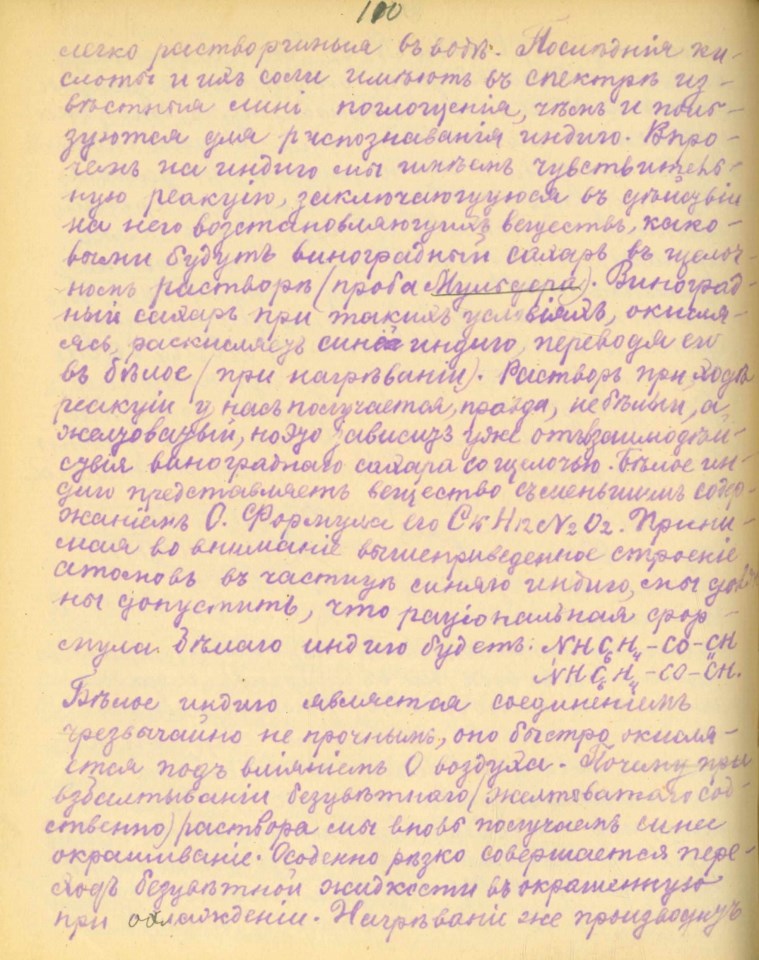 100
легко растворимыя въ водѣ. Послѣднія ки-
слоты и ихъ соли имѣютъ въ спектрѣ из-
вѣстныя линіи поглощенія, чѣмъ и поль-
зуются для распознаванія индиго. Впро-
чемъ на индиго мы имѣемъ чувствитель-
ную реакцію, заключающуюся въ дѣйствіи
на него возстановляющихъ веществъ, како-
выми будутъ виноградный сахаръ въ щелоч-
номъ растворѣ (проба Мульдера). Виноград-
ный сахаръ при такихъ условіяхъ, окисля-
ясь, раскисляетъ синее индиго, переводя его
въ бѣлое (при нагрѣваніи). Растворъ при ходѣ
реакціи у насъ получается, правда, не бѣлый, а
желтоватый, но это зависитъ уже отъ взаимодѣй-
ствія винограднаго сахара со щелочью. Бѣлое ин-
диго представляетъ вещество съ меньшимъ содер-
жаніемъ О. Формула его C16H12N2O2. Прини-
мая во вниманіе вышеприведенное строеніе
атомовъ въ частицѣ синяго индиго, мы долж-
ны допустить, что раціональная фор-
мула бѣлаго индиго будетъ: NHC6H4-CO-CH
NHC6H4-CO-CH.
Бѣлое индиго является соединеніемъ
чрезвычайно не прочнымъ, оно быстро окисля-
ется подъ вліяніемъ О воздуха. Почему при
взбалтываніи безцвѣтнаго (желтоватаго соб-
ственно) раствора мы вновь получаемъ синее
окрашиваніе. Особенно рѣзко совершается пере-
ходъ безцвѣтной жидкости въ окрашенную
при охлажденіи. Нагрѣваніе же производитъ